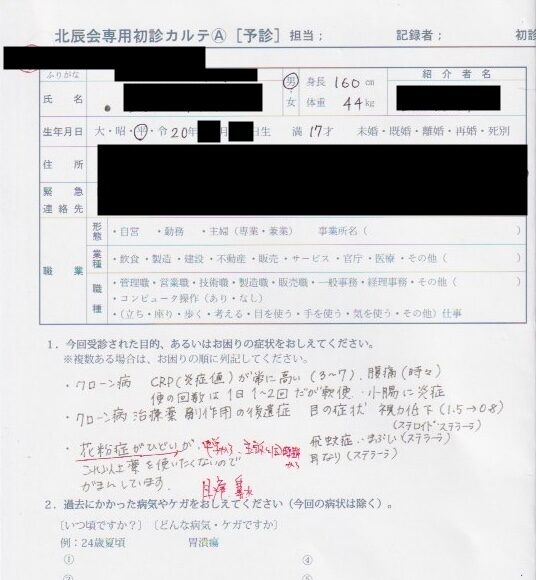 北辰会専用初診カルテⒶ [予診] 担当; 記録者; 初診
ふりがな
氏名 男・女 身長 160 cm 体重 44 kg 紹介者名
生年月日 大・昭・平・令 20年 月 日生 満 17才 未婚・既婚・離婚・再婚・死別
住所
緊急連絡先
職業
形態 ・自営 ・勤務 ・主婦(専業・兼業) 事業所名( )
業種 ・飲食・製造・建設・不動産・販売・サービス・官庁・医療・その他( )
職種 ・管理職・営業職・技術職・製造職・販売職・一般事務・経理事務・その他( )
・コンピュータ操作(あり・なし)
・(立ち・座り・歩く・考える・目を使う・手を使う・気を使う・その他)仕事
1. 今回受診された目的、あるいはお困りの症状をおしえてください。
※複数ある場合は、お困りの順に列記してください。
・クローン病 CRP(炎症値)が常に高い(3~7)、腹痛(時々)
便の回数は1日1~2回だが軟便・小腸に炎症
・クローン病治療薬副作用の後遺症 目の症状 視力低下(1.5→0.8)
(ステロイド ステラーラ)
・花粉症がひどいが、 飛蚊症・まぶしい(ステラーラ)
これ以上薬を使いたくないので 耳なり(ステラーラ)
がまんしています。
2. 過去にかかった病気やケガをおしえてください(今回の病状は除く)。
[いつ頃ですか?] [どんな病気・ケガですか]
例:24歳夏頃 胃潰瘍
① ④